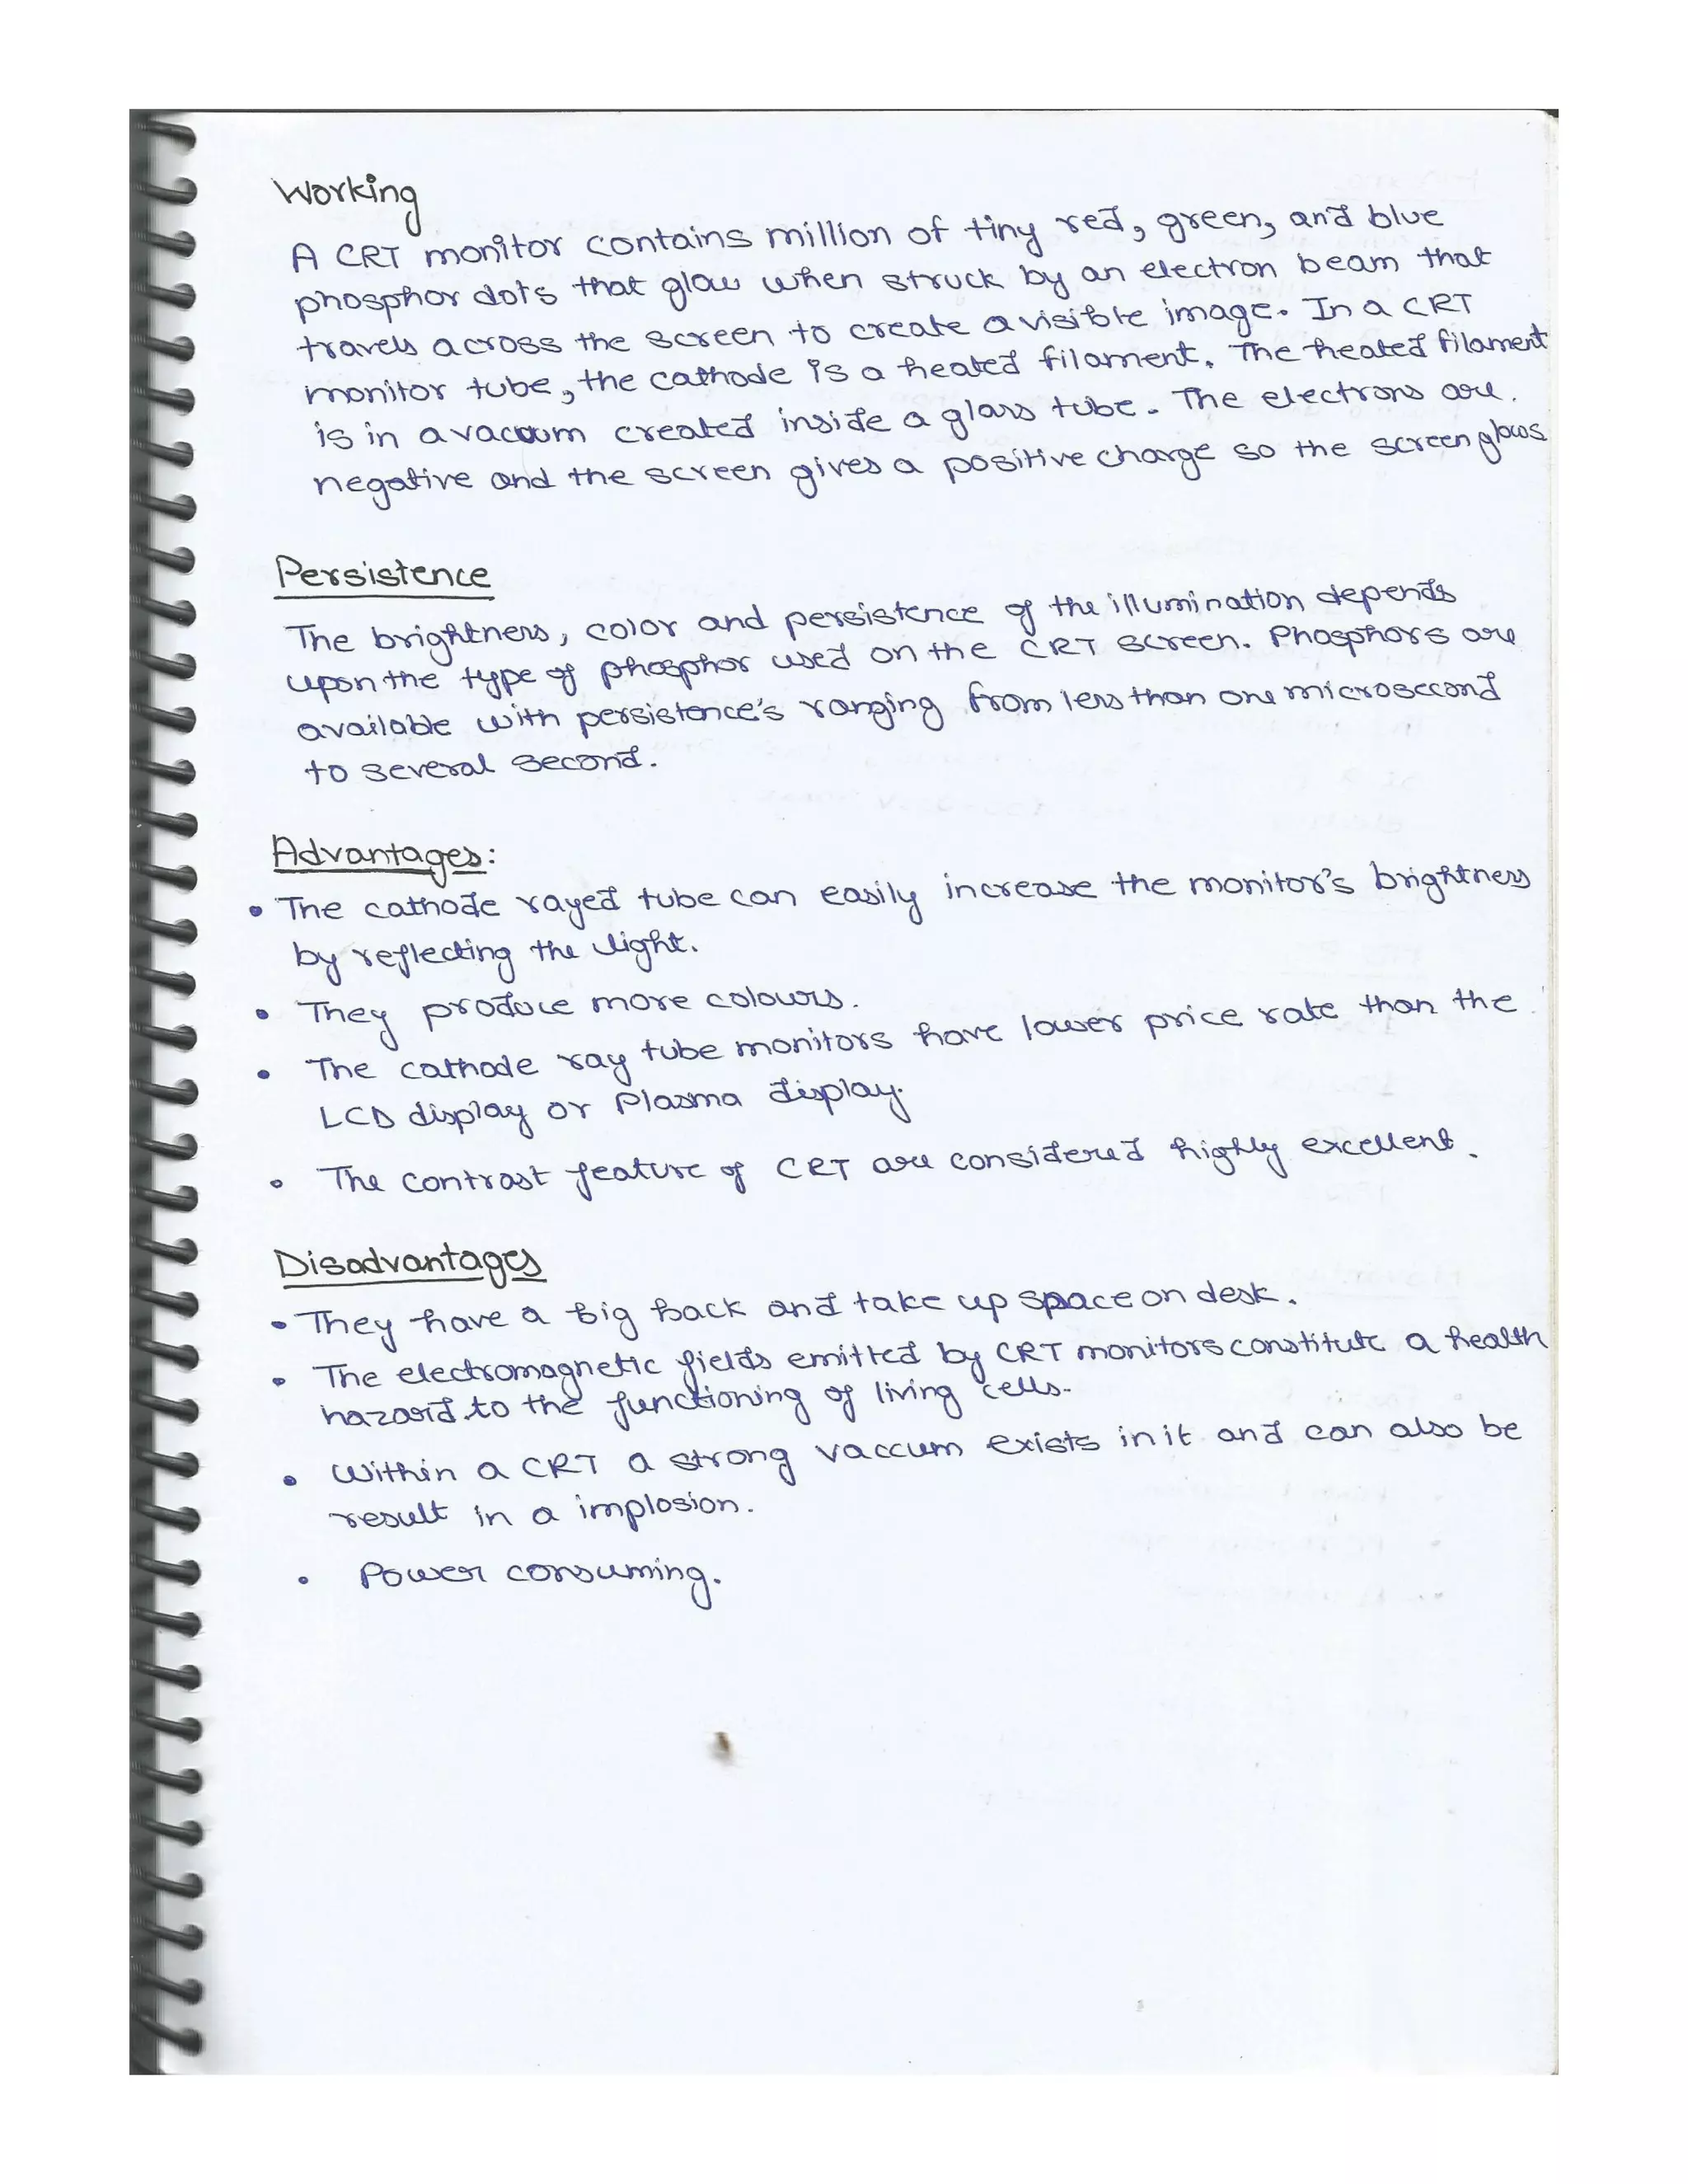 Working
A CRT monitor contains million of tiny red, green, and blue
phosphor dots that glow when struck by an electron beam that
travels across the screen to create a visible image. In a CRT
monitor tube, the cathode is a heated filament. The heated filament
is in a vacuum created inside a glass tube. The electrons are.
negative and the screen gives a positive charge so the screen glows
Persistence
The brightness, color and persistence of the illumination depends
upon the type of phosphor used on the CRT screen. Phosphors are
available with persistence's ranging from less than one microsecond
to several second.
Advantages:
• The cathode rayed tube can easily increase the monitor's brightness
by reflecting the light.
• They produce more colours.
• The cathode ray tube monitors have lower price rate than the
LCD display or Plasma display.
• The contrast feature of CRT are considered highly excellent.
Disadvantages
• They have a big back and take up space on desk.
• The electromagnetic fields emitted by CRT monitors constitute a health
hazard to the functioning of living cells.
• Within a CRT a strong vaccum exists in it and can also be
result in a implosion.
• Power consuming.